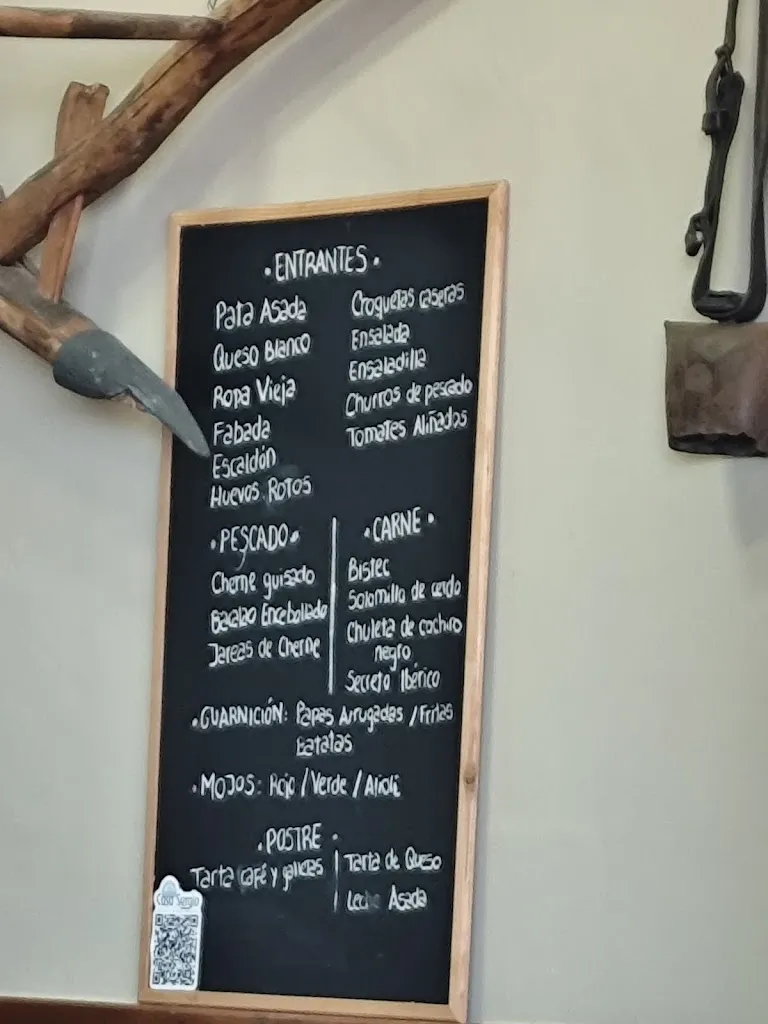 ·ENTRANTES·
Pata Asada
Queso Blanco
Ropa Vieja
Fabada
Escaldón
Huevos Rotos
Croquetas caseras
Ensalada
Ensaladilla
Churros de pescado
Tomates Aliñados
·PESCADO·
Cherne guisado
Bacalao Encebollado
Jareas de Cherne
·CARNE·
Bistec
Solomillo de cerdo
Chuleta de cochino
negro
Secreto Ibérico
·GUARNICIÓN: Papas Arrugadas / Fritas
Batatas
·MOJOS: Rojo / Verde / Alioli
·POSTRE·
Tarta café y galletas
Tarta de Queso
Leche Asada
Casa Sergio